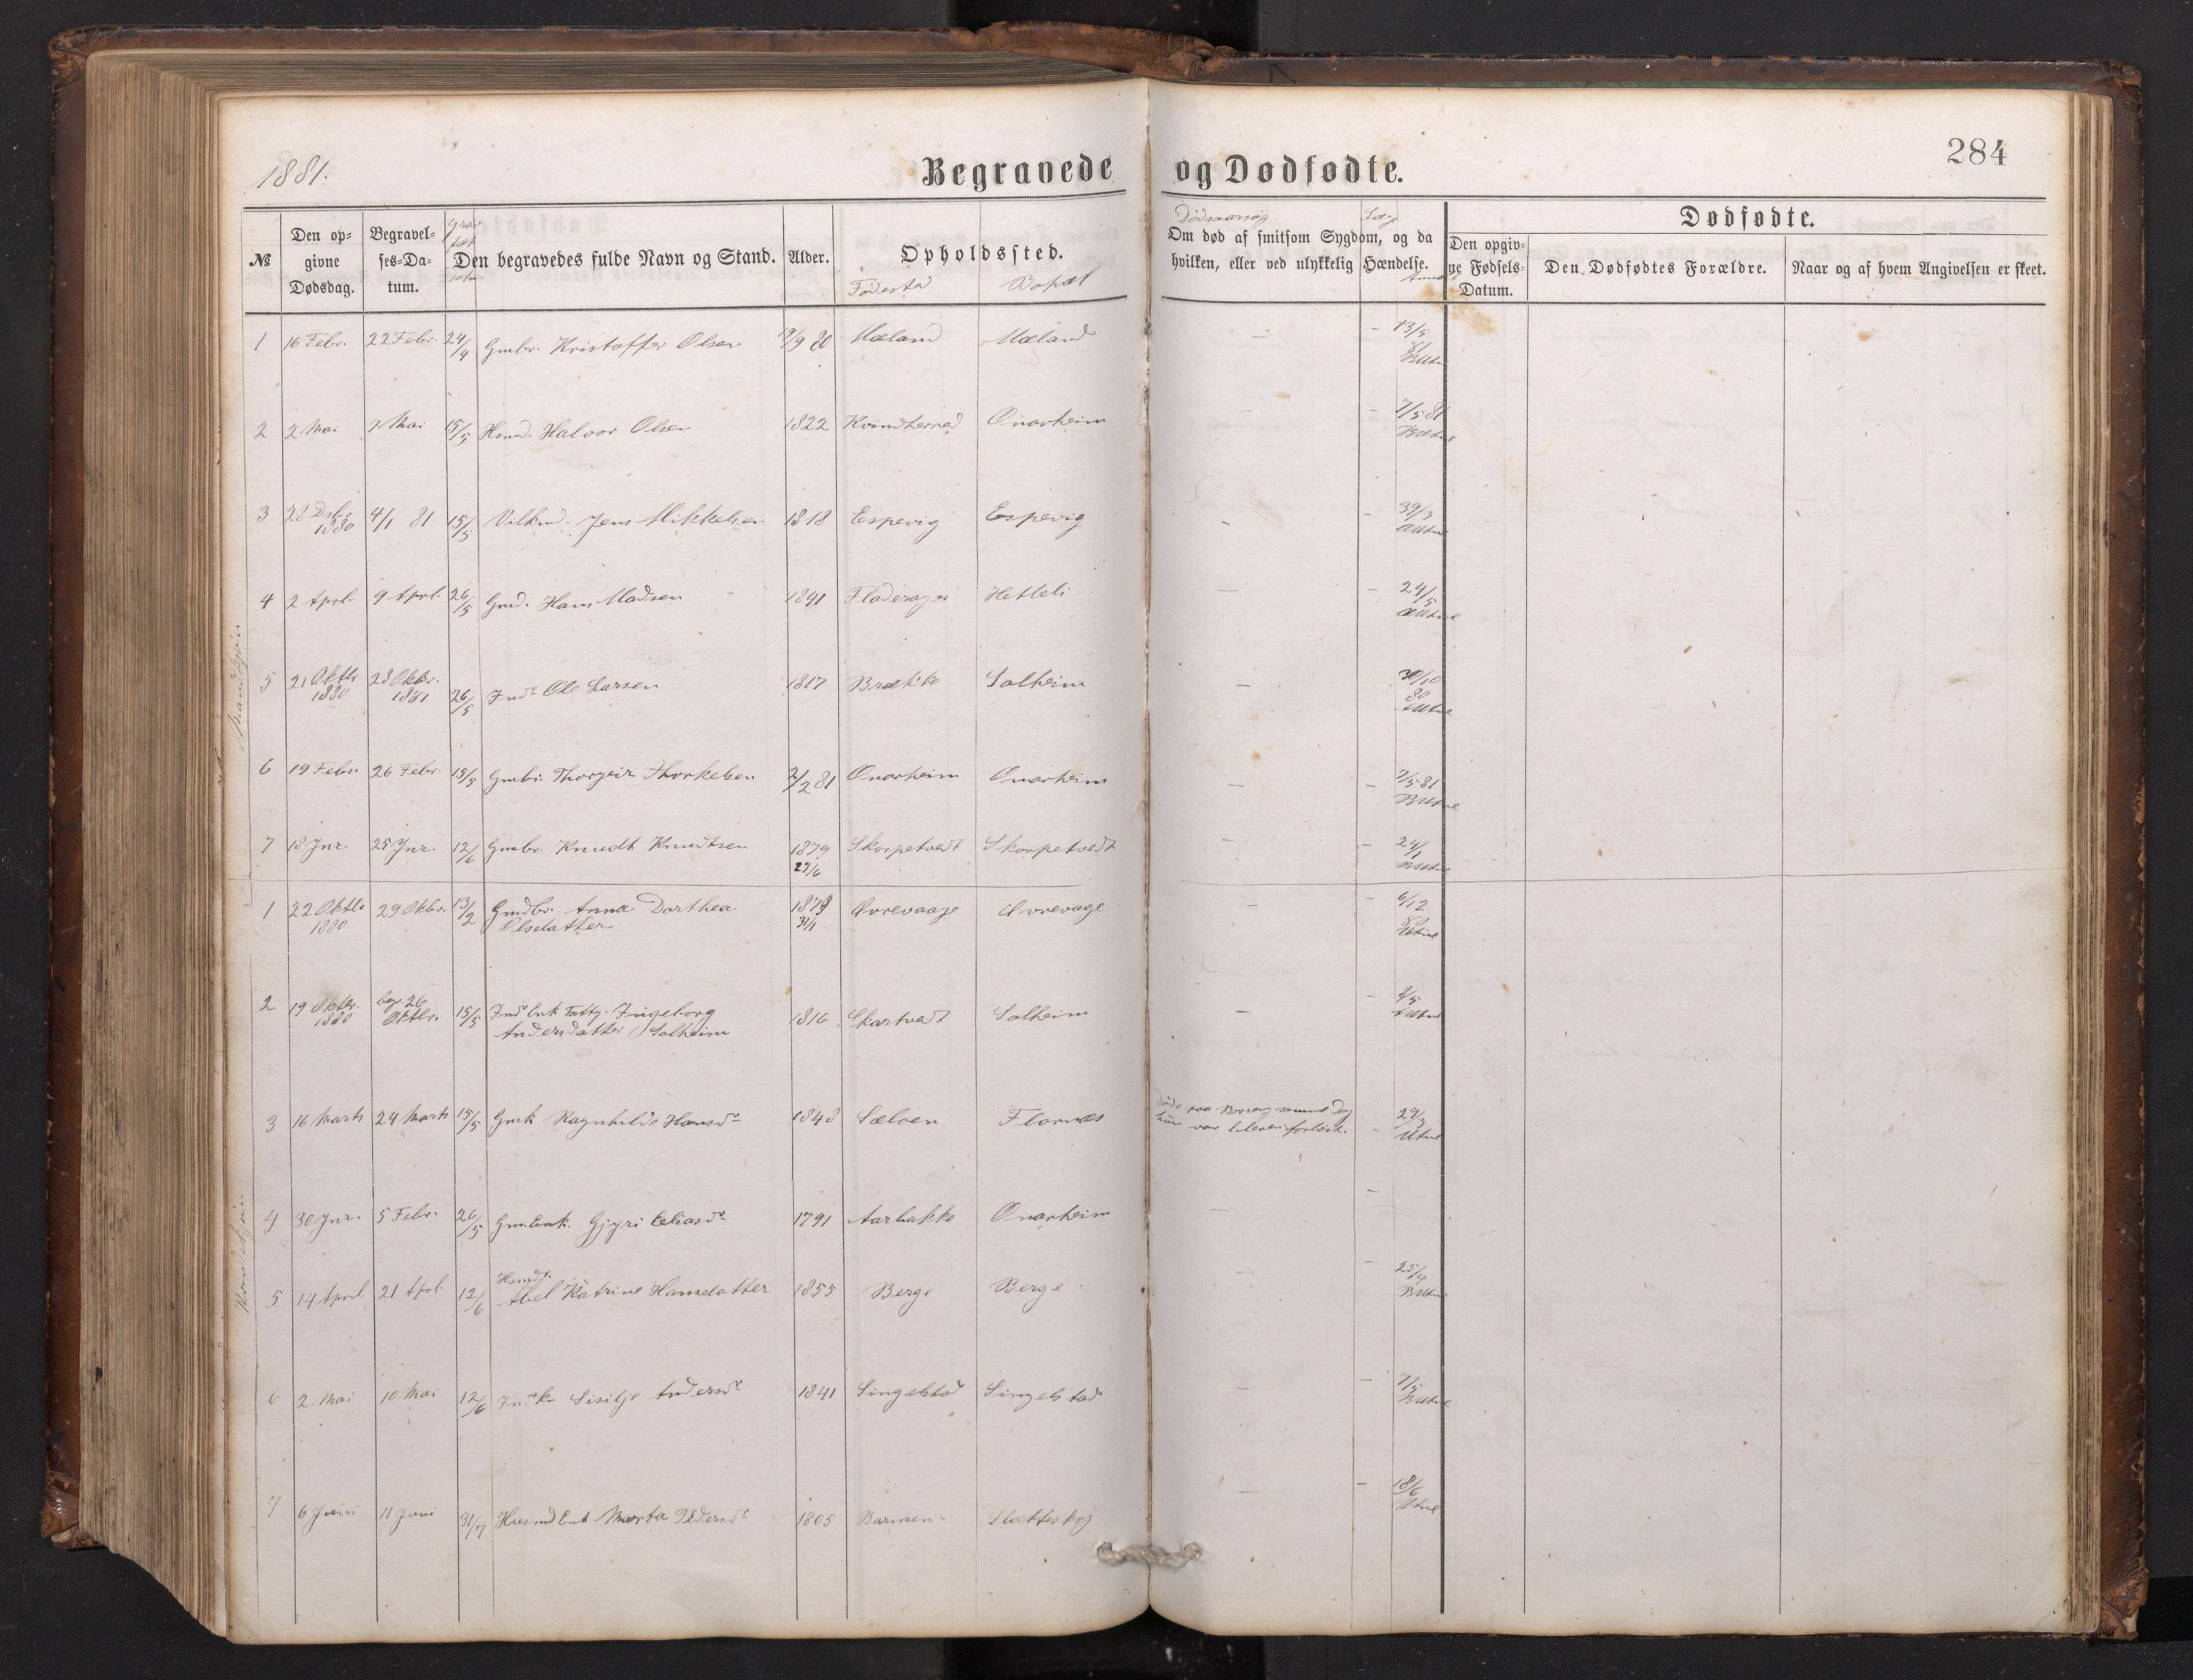 1881.
Begravede og Dødfødte.
284
№
Den opgivne Dødsdag.
Begravelses-Datum.
Den begravedes fulde Navn og Stand.
Alder.
Opholdssted.
Fødested
Bopæl
Dødsaarsag
Om død af smitsom Sygdom, og da hvilken, eller ved ulykkelig Hændelse.
Dødfødte.
Den opgivne Fødsels-Datum.
Den Dødfødtes Forældre.
Naar og af hvem Angivelsen er skeet.
Mandkjøn
1 16 Febr. 22 Febr. 24/4 Gmbr. Kristoffer Olsen 19/9 80 Mæland Mæland — - 13/5 81
2 2 Mai 7 Mai 15/5 Hsmd. Halvor Olsen 1822 Kvindherred Onarheim - 7/5 81
3 28 Dsbr 1880 4/1 81 15/5 Jens Mikkelsen 1818 Espevig Espevig - -
4 2 Aprl. 9 Aprl. 26/5 Gmd. Hans Madsen 1841 Hetleli — - 24/5
5 21 Oktbr 1880 28 Okbr. 1881 26/5 Inds Ole Larsen 1817 Brække Solheim — 30/10 80
6 19 Febr. 26 Febr. 15/5 Gmbr. Thorgeir Thorkelsen 2/2 81 Onarheim Onarheim — - 7/5 81
7 18 Jnr. 25 Jnr. 12/6 Gmbr. Knudt Knudtsen 1879 27/6 Skorpetvedt Skorpetvedt — - 24/1
Kvindekjøn
1 22 Oktbr 1880 29 Okbr. 13/2 Gmdbr. Anna Dorthea Olsdatter 1879 31/1 Øvrevaage Øvrevage - - 6/12 80
2 19 Oktbr. 1880 begr. 26 Oktbr. 15/5 Inds Enk Fattg. Ingeborg Andersdatter Solheim 1816 Skartvedt Solheim — - 8/5
3 16 Marts 24 Marts 15/5 Gmk Ragnhilde Hansdr 1848 Sælven Flornæs samme Dag hun var bleven forløst. - 29/3
4 30 Jnr. 5 Febr. 26/5 Gm.Enk. Gjyri Eliasdr 1791 Aarbakke Onarheim — -
5 14 Aprl. 21 Aprl. 12/6 Abel Katrine Hansdatter 1855 Berge Berge — - 25/4
6 2 Mai 10 Mai 12/6 Sisilje Andersdr 1841 Singelstad Singelstad — - 7/5
7 6 Juni 11 Juni 31/7 Husmd Enk Marta Pedersdr 1805 Barmen — - 18/6